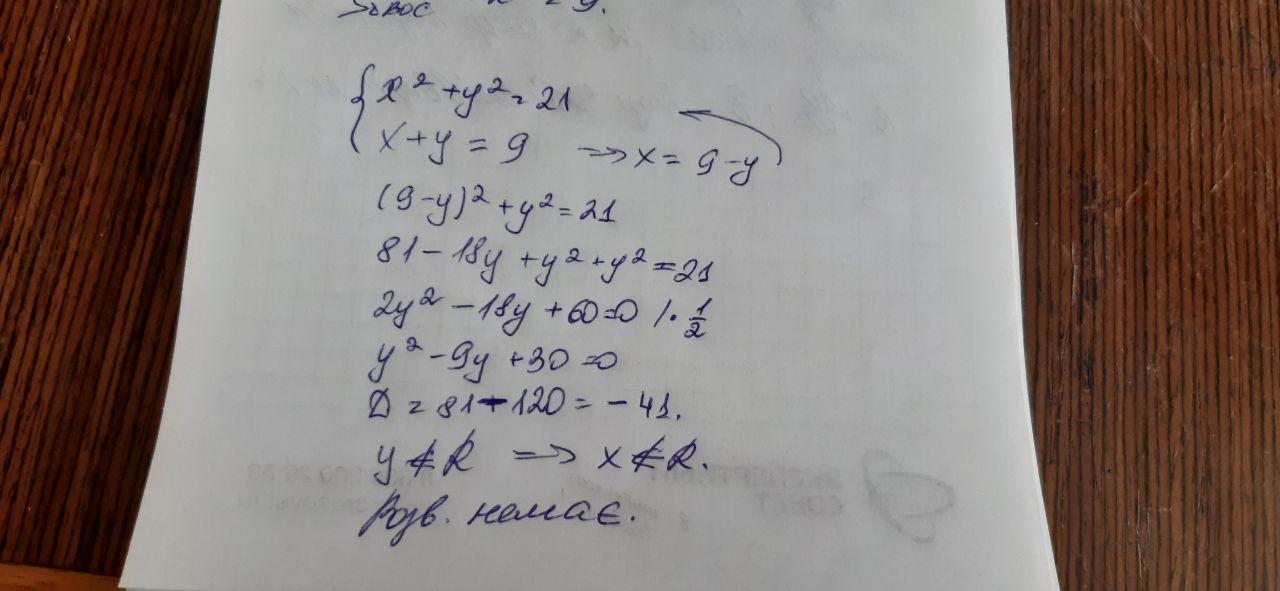 x² + y² = 21
x + y = 9 ⇒ x = 9 - y
(9 - y)² + y² = 21
81 - 18y + y² + y² = 21
2y² - 18y + 60 = 0 / · 1/2
y² - 9y + 30 = 0
D = 81 - 120 = - 41.
y ∉ R ⇒ x ∉ R.
Розв. немає.